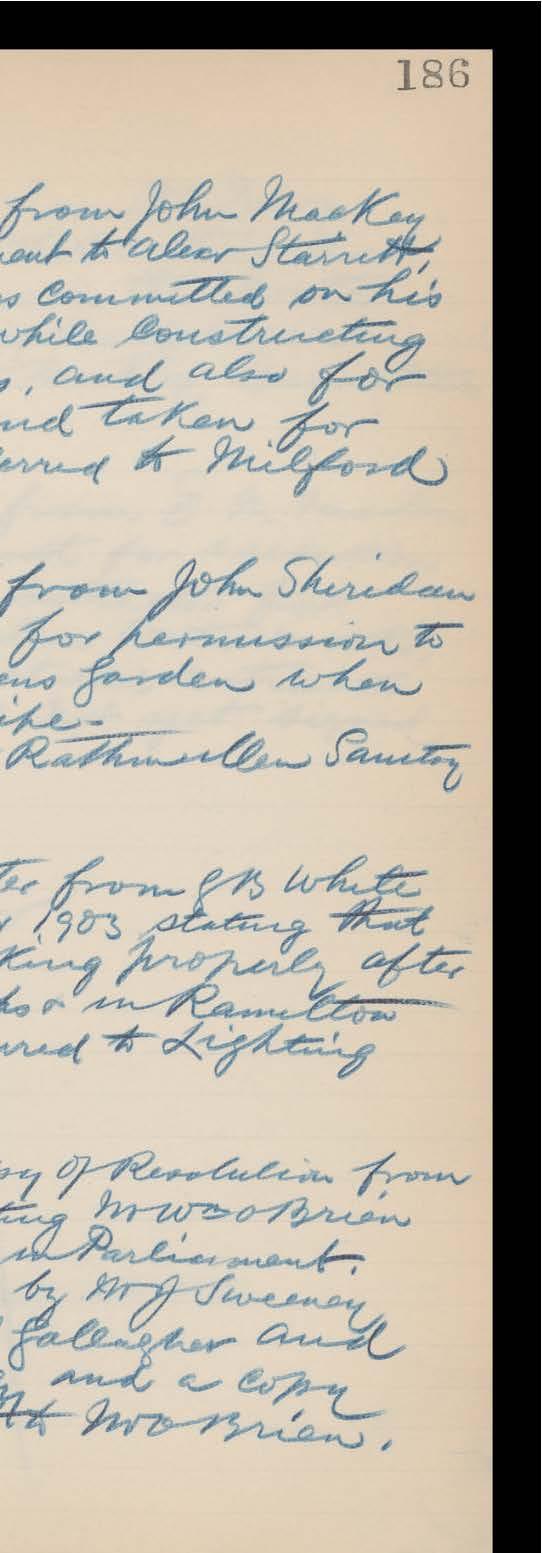 186
from John MacKey
ent to Alexr Starrett,
s committed on his
while Constructing
s, and also for
nd taken for
erred to Milford
from John Sheridan
for permission to
ens Garden when
ipe-
Rathmullen Sanitary
ter from J B White
r 1903 stating that
king properly after
in Ramelton
rred to Lighting
py Of Resolution from
ting Mr Wm O Brien
in Parliament.
by Mr J Sweeney
Gallagher and
and a copy
to Mr O Brien.